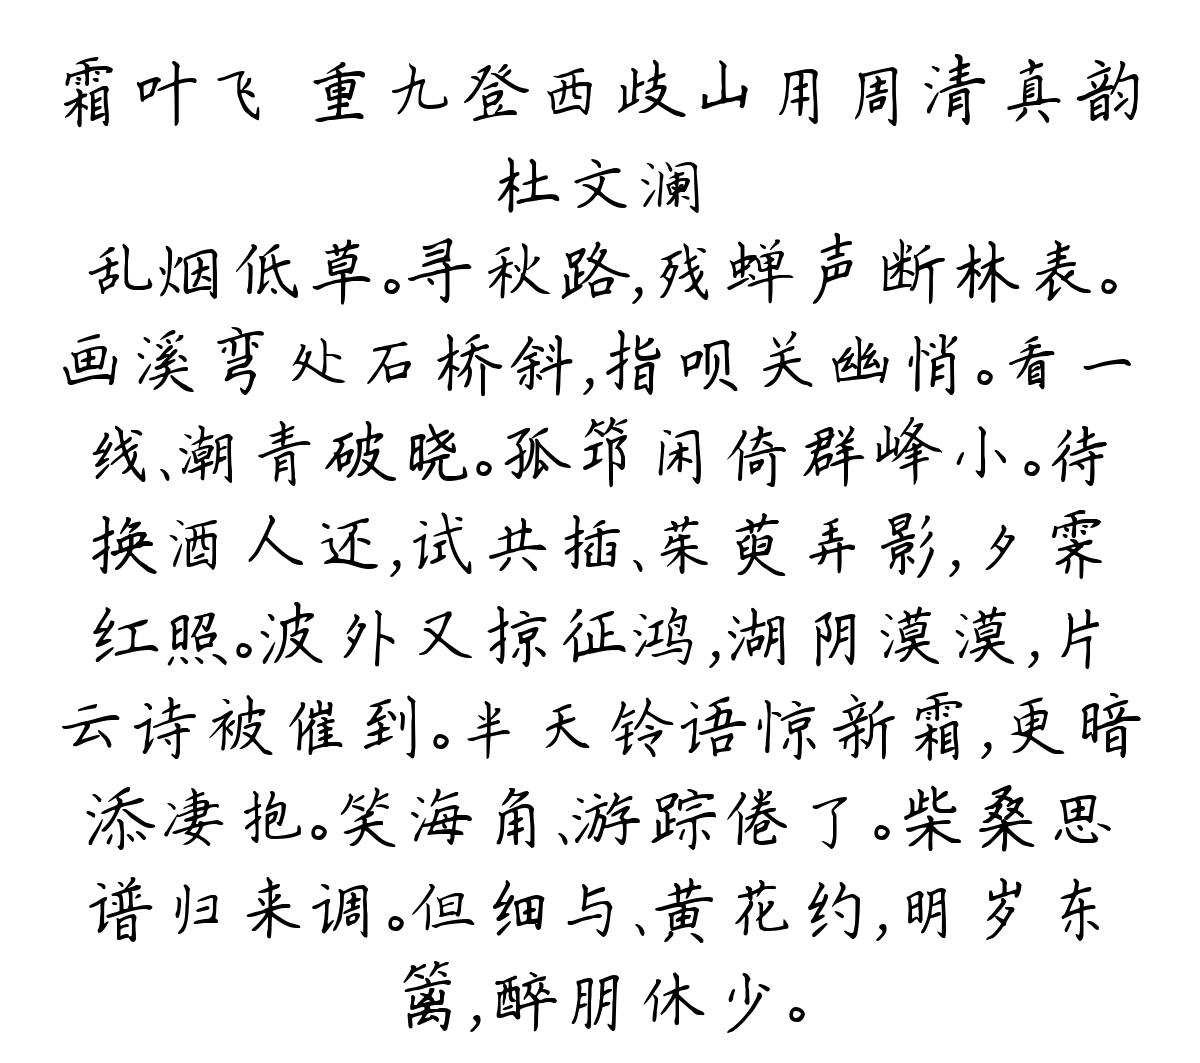 霜叶飞 重九登西歧山用周清真韵
杜文澜
乱烟低草。寻秋路,残蝉声断林表。
画溪弯处石桥斜,指呗关幽悄。看一
线、潮青破晓。孤筇闲倚群峰小。待
换酒人还,试共插、茱萸弄影,夕霁
红照。波外又掠征鸿,湖阴漠漠,片
云诗被催到。半天铃语惊新霜,更暗
添凄抱。笑海角、游踪倦了。柴桑思
谱归来调。但细与、黄花约,明岁东
篱,醉朋休少。